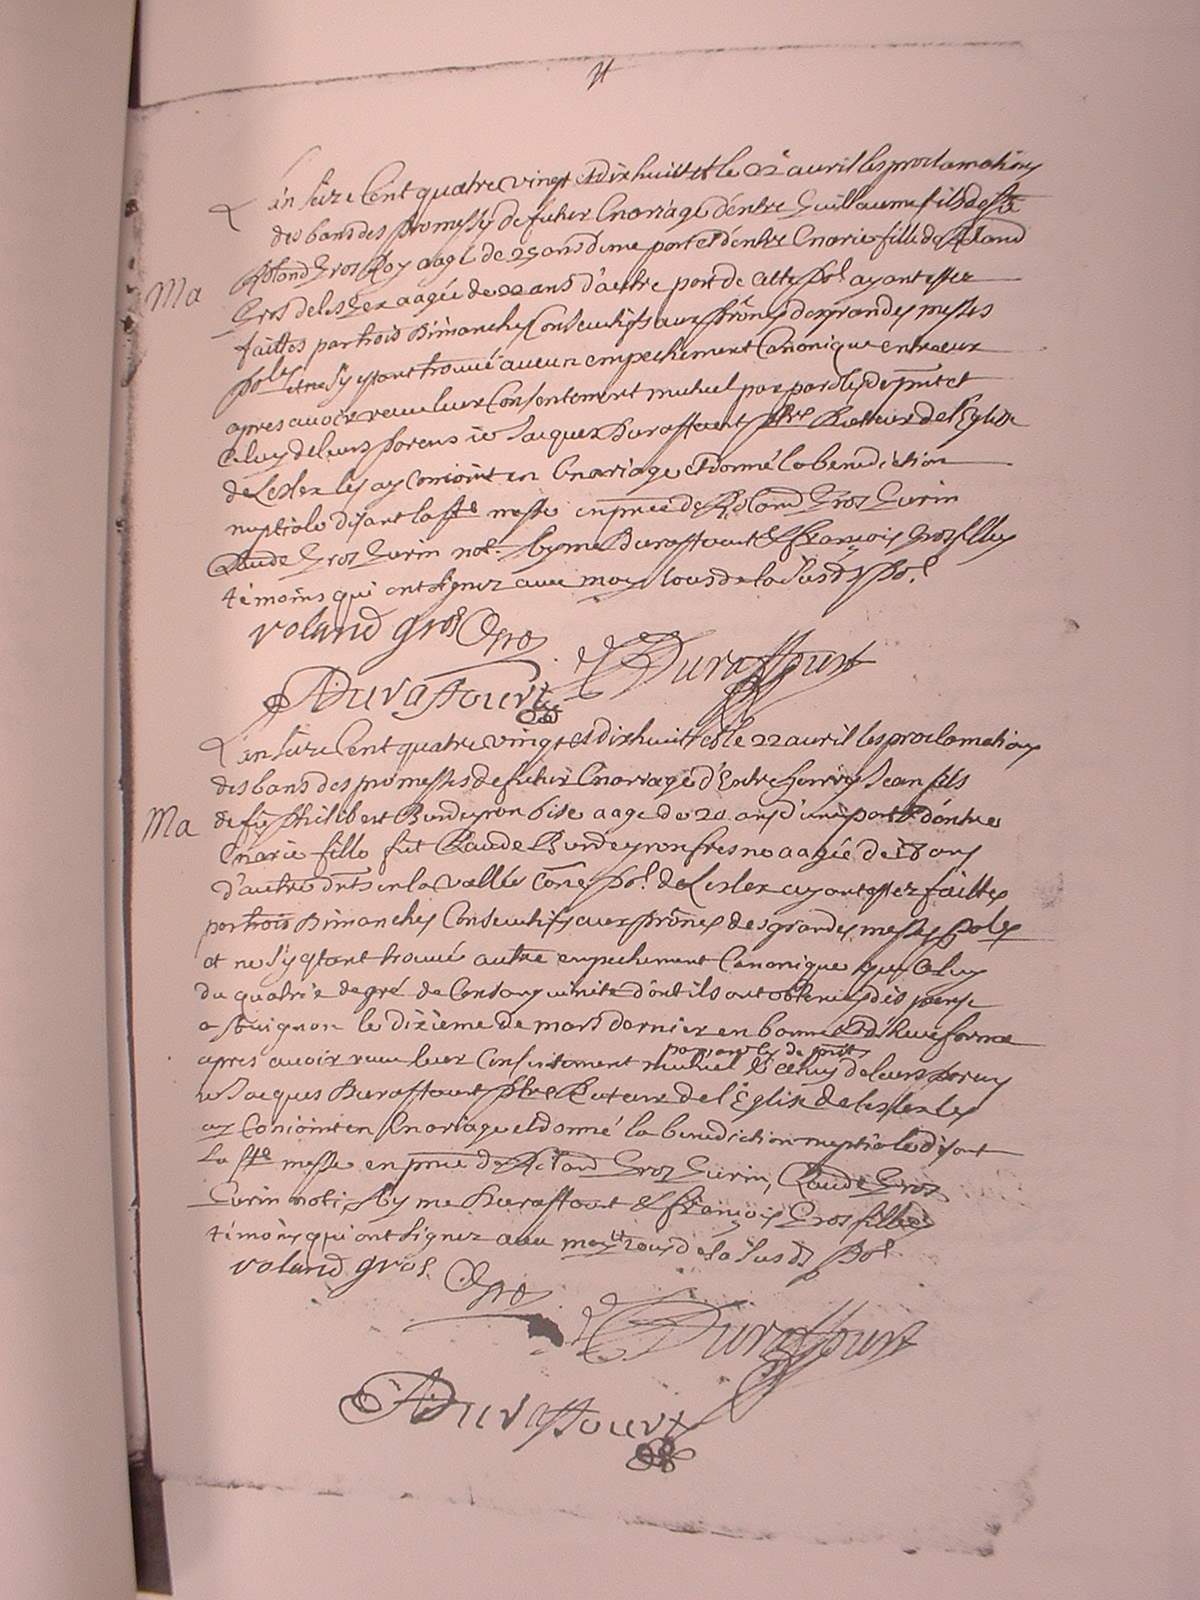 L'an seize Cent quatre vingt et dix huict et le 22e auvril les proclamations
des bans des promesses de futur mariage d'entre Guillaume fils de
Roland Gros Roy aagé de 25 ans d'une part et d'entre marie fille de Roland
Gros de les aagée de 22 ans d'autre part de cette ayant estez
faittes par trois Dimanches Consecutifs aux Prônes des grandes messes
et ne s'y estant trouvé aucun empechement Canonique entre eux
apres avoir receu leur Consentement mutuel par parolles de pnt et
celuy de leurs parens ie Jacques Duraffourt ptre Recteur de l'Eglise
de Lexlex les ay Conioint en mariage et donné la benediction
nuptiale disant la ste messe en pnce de Roland Gros Gurin
Claude Gros Gurin not. Duraffourt et françois Gros filliez
témoins qui ont signez avec moy tous de la susd
roland gros Gros
Duraffourt
Duraffourt
L'an seize Cent quatre vingt et dix huict et le 22 auvril les proclamations
des bans des promesses de futur mariage d'Entre Jean fils
de fû Philibert Burdeyron bise aagé de 20 ans d'une part et d'entre
marie fille fût Claude Burdeyron fresne aagée de 18 ans
d'autre en la vallée de Lexlex ayant estez faittes
par trois Dimanches Consecutifs aux Prônes des grandes messes
et ne s'y estant trouvé autre empechement Canonique que Celuy
du quatrie degré de Consanguinite d'ont ils ont obtenus dispense
le dixieme de mars dernier en bonne et deue forme
par parolles de pnt
apres avoir receu leur Consentement mutuel & celuy de leurs parens
ie Jacques Duraffourt ptre Recteur de l'Eglise de lexlex les
ay Conioint en mariage et donné la benediction nuptiale disant
La ste messe en pnce de Roland Gros Gurin, Claude Gros
Gurin not. Duraffourt & françois Gros filliez
témoins qui ont signez avec moy tous de la susd
roland gros. Gros
Duraffourt
Duraffourt
Ma
Ma